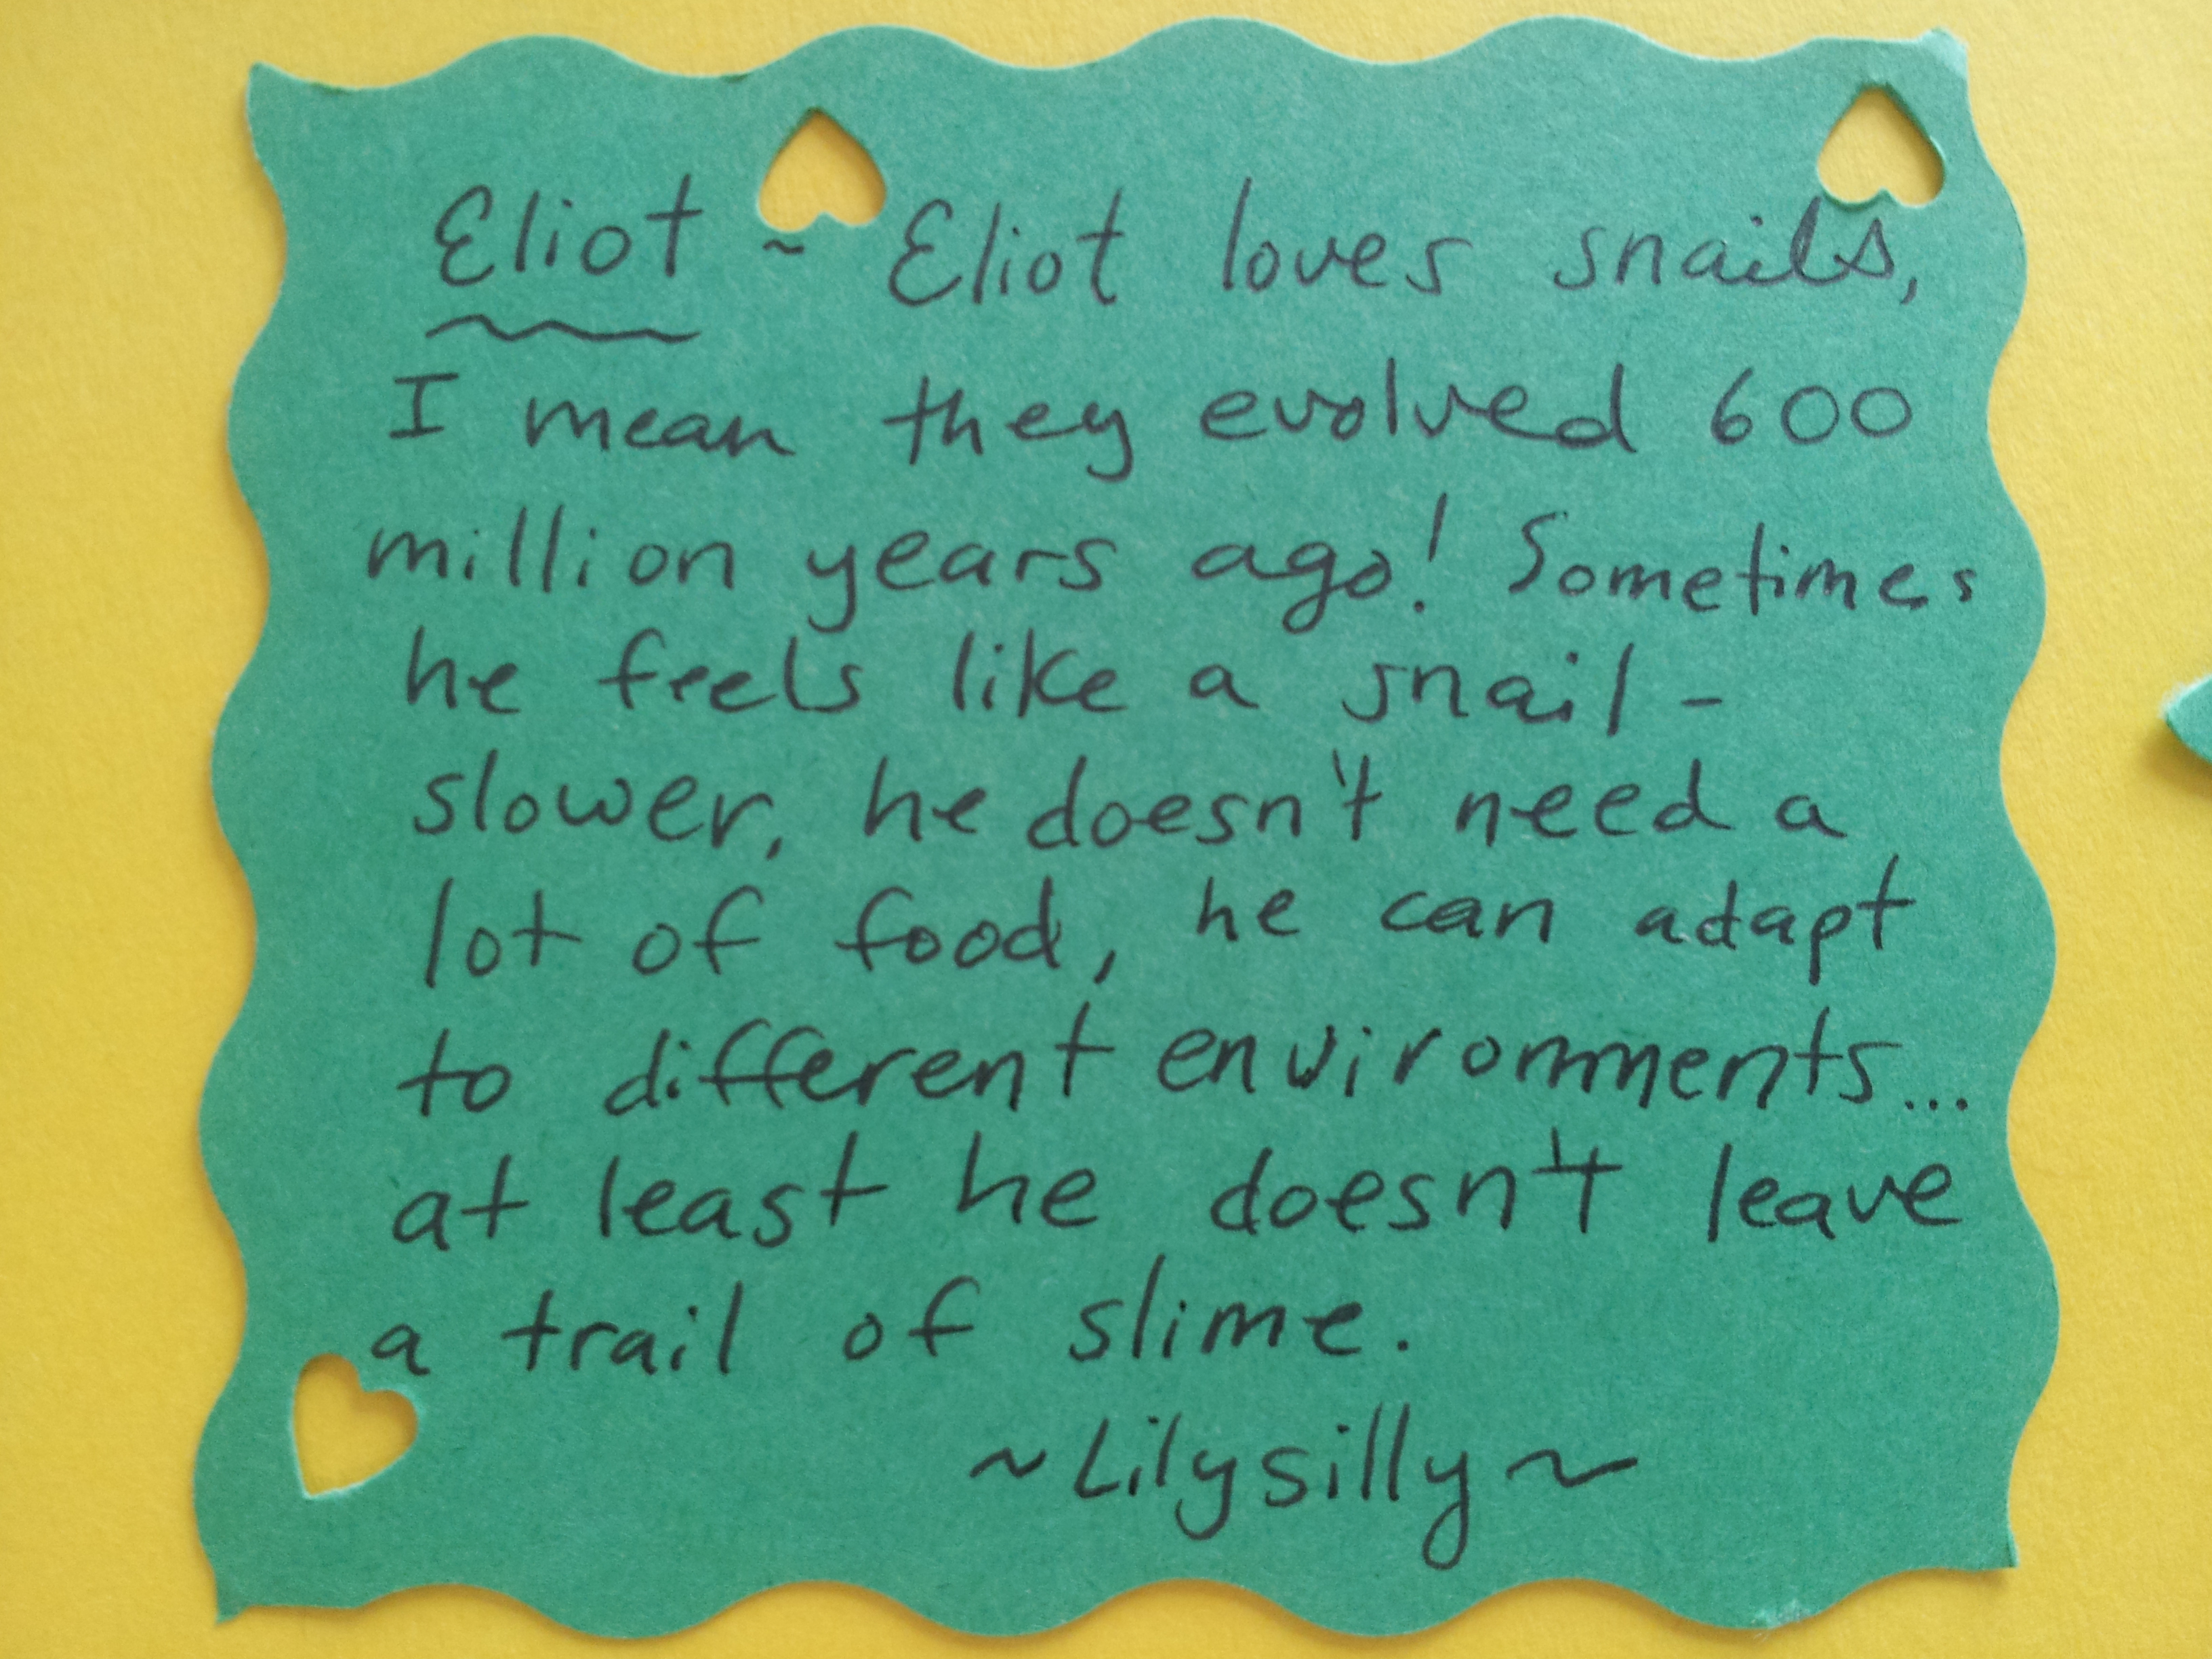 Eliot ~ Eliot loves snails,
I mean they evolved 600
million years ago! Sometimes
he feels like a snail -
slower, he doesn't need a
lot of food, he can adapt
to different environments...
at least he doesn't leave
a trail of slime.
~Lilysilly~